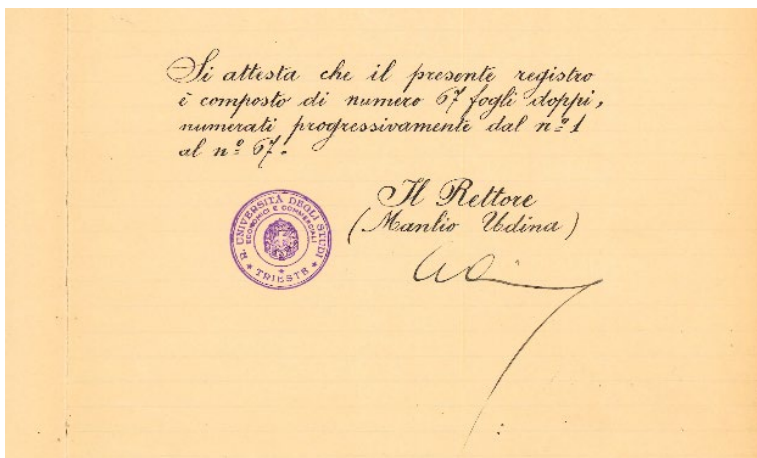 Si attesta che il presente registro
è composto di numero 67 fogli doppi,
numerati progressivamente dal nº 1
al nº 67.
Il Rettore
(Manlio Udina)
R. UNIVERSITÀ DEGLI STUDI
ECONOMICI E COMMERCIALI
* TRIESTE *